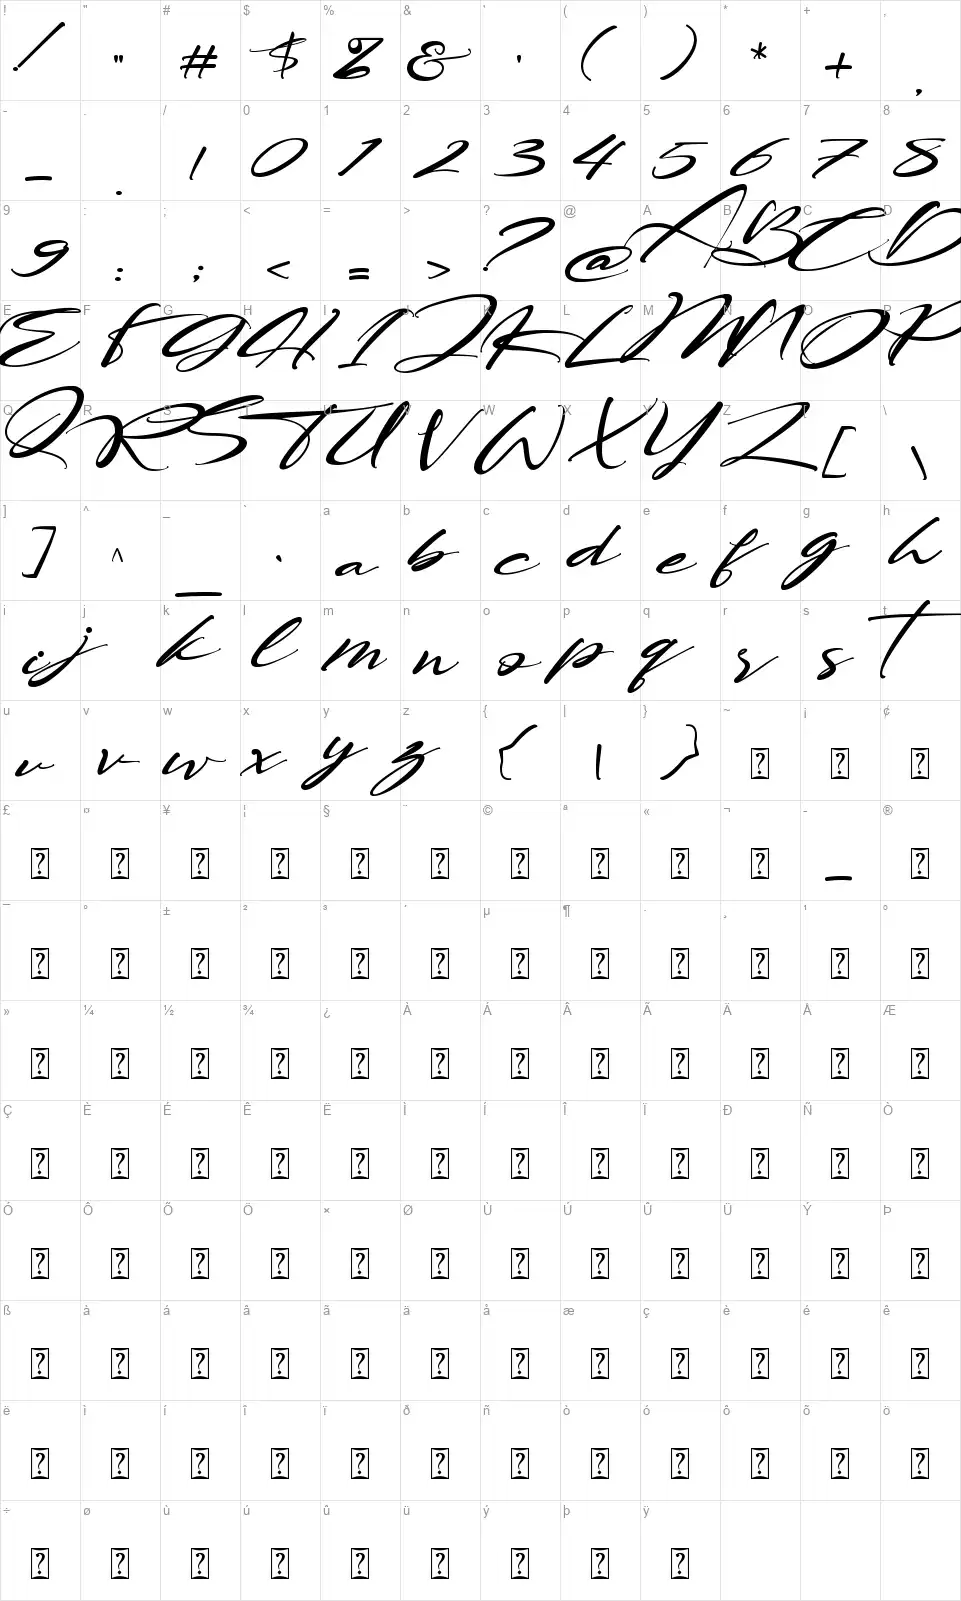 ! " # $ % & ' ( ) * + ,
! " # $ % & ' ( ) * + ,
- . / 0 1 2 3 4 5 6 7 8
- . / 0 1 2 3 4 5 6 7 8
9 : ; < = > ? @ A B C D
9 : ; < = > ? @ A B C D
E F G H I J K L M N O P
E F G H I J K L M N O P
Q R S T U V W X Y Z [ \
Q R S T U V W X Y Z [ \
] ^ _ ` a b c d e f g h
] ^ _ ` a b c d e f g h
i j k l m n o p q r s t
i j k l m n o p q r s t
u v w x y z { | } ~ ¡ ¢
u v w x y z { | } ? ? ?
£ ¤ ¥ ¦ § ¨ © ª « ¬ - ®
? ? ? ? ? ? ? ? ? ? - ?
¯ ° ± ² ³ ´ µ ¶ · ¸ ¹ º
? ? ? ? ? ? ? ? ? ? ? ?
» ¼ ½ ¾ ¿ À Á Â Ã Ä Å Æ
? ? ? ? ? ? ? ? ? ? ? ?
Ç È É Ê Ë Ì Í Î Ï Ð Ñ Ò
? ? ? ? ? ? ? ? ? ? ? ?
Ó Ô Õ Ö × Ø Ù Ú Û Ü Ý Þ
? ? ? ? ? ? ? ? ? ? ? ?
ß à á â ã ä å æ ç è é ê
? ? ? ? ? ? ? ? ? ? ? ?
ë ì í î ï ð ñ ò ó ô õ ö
? ? ? ? ? ? ? ? ? ? ? ?
÷ ø ù ú û ü ý þ ÿ
? ? ? ? ? ? ? ? ?